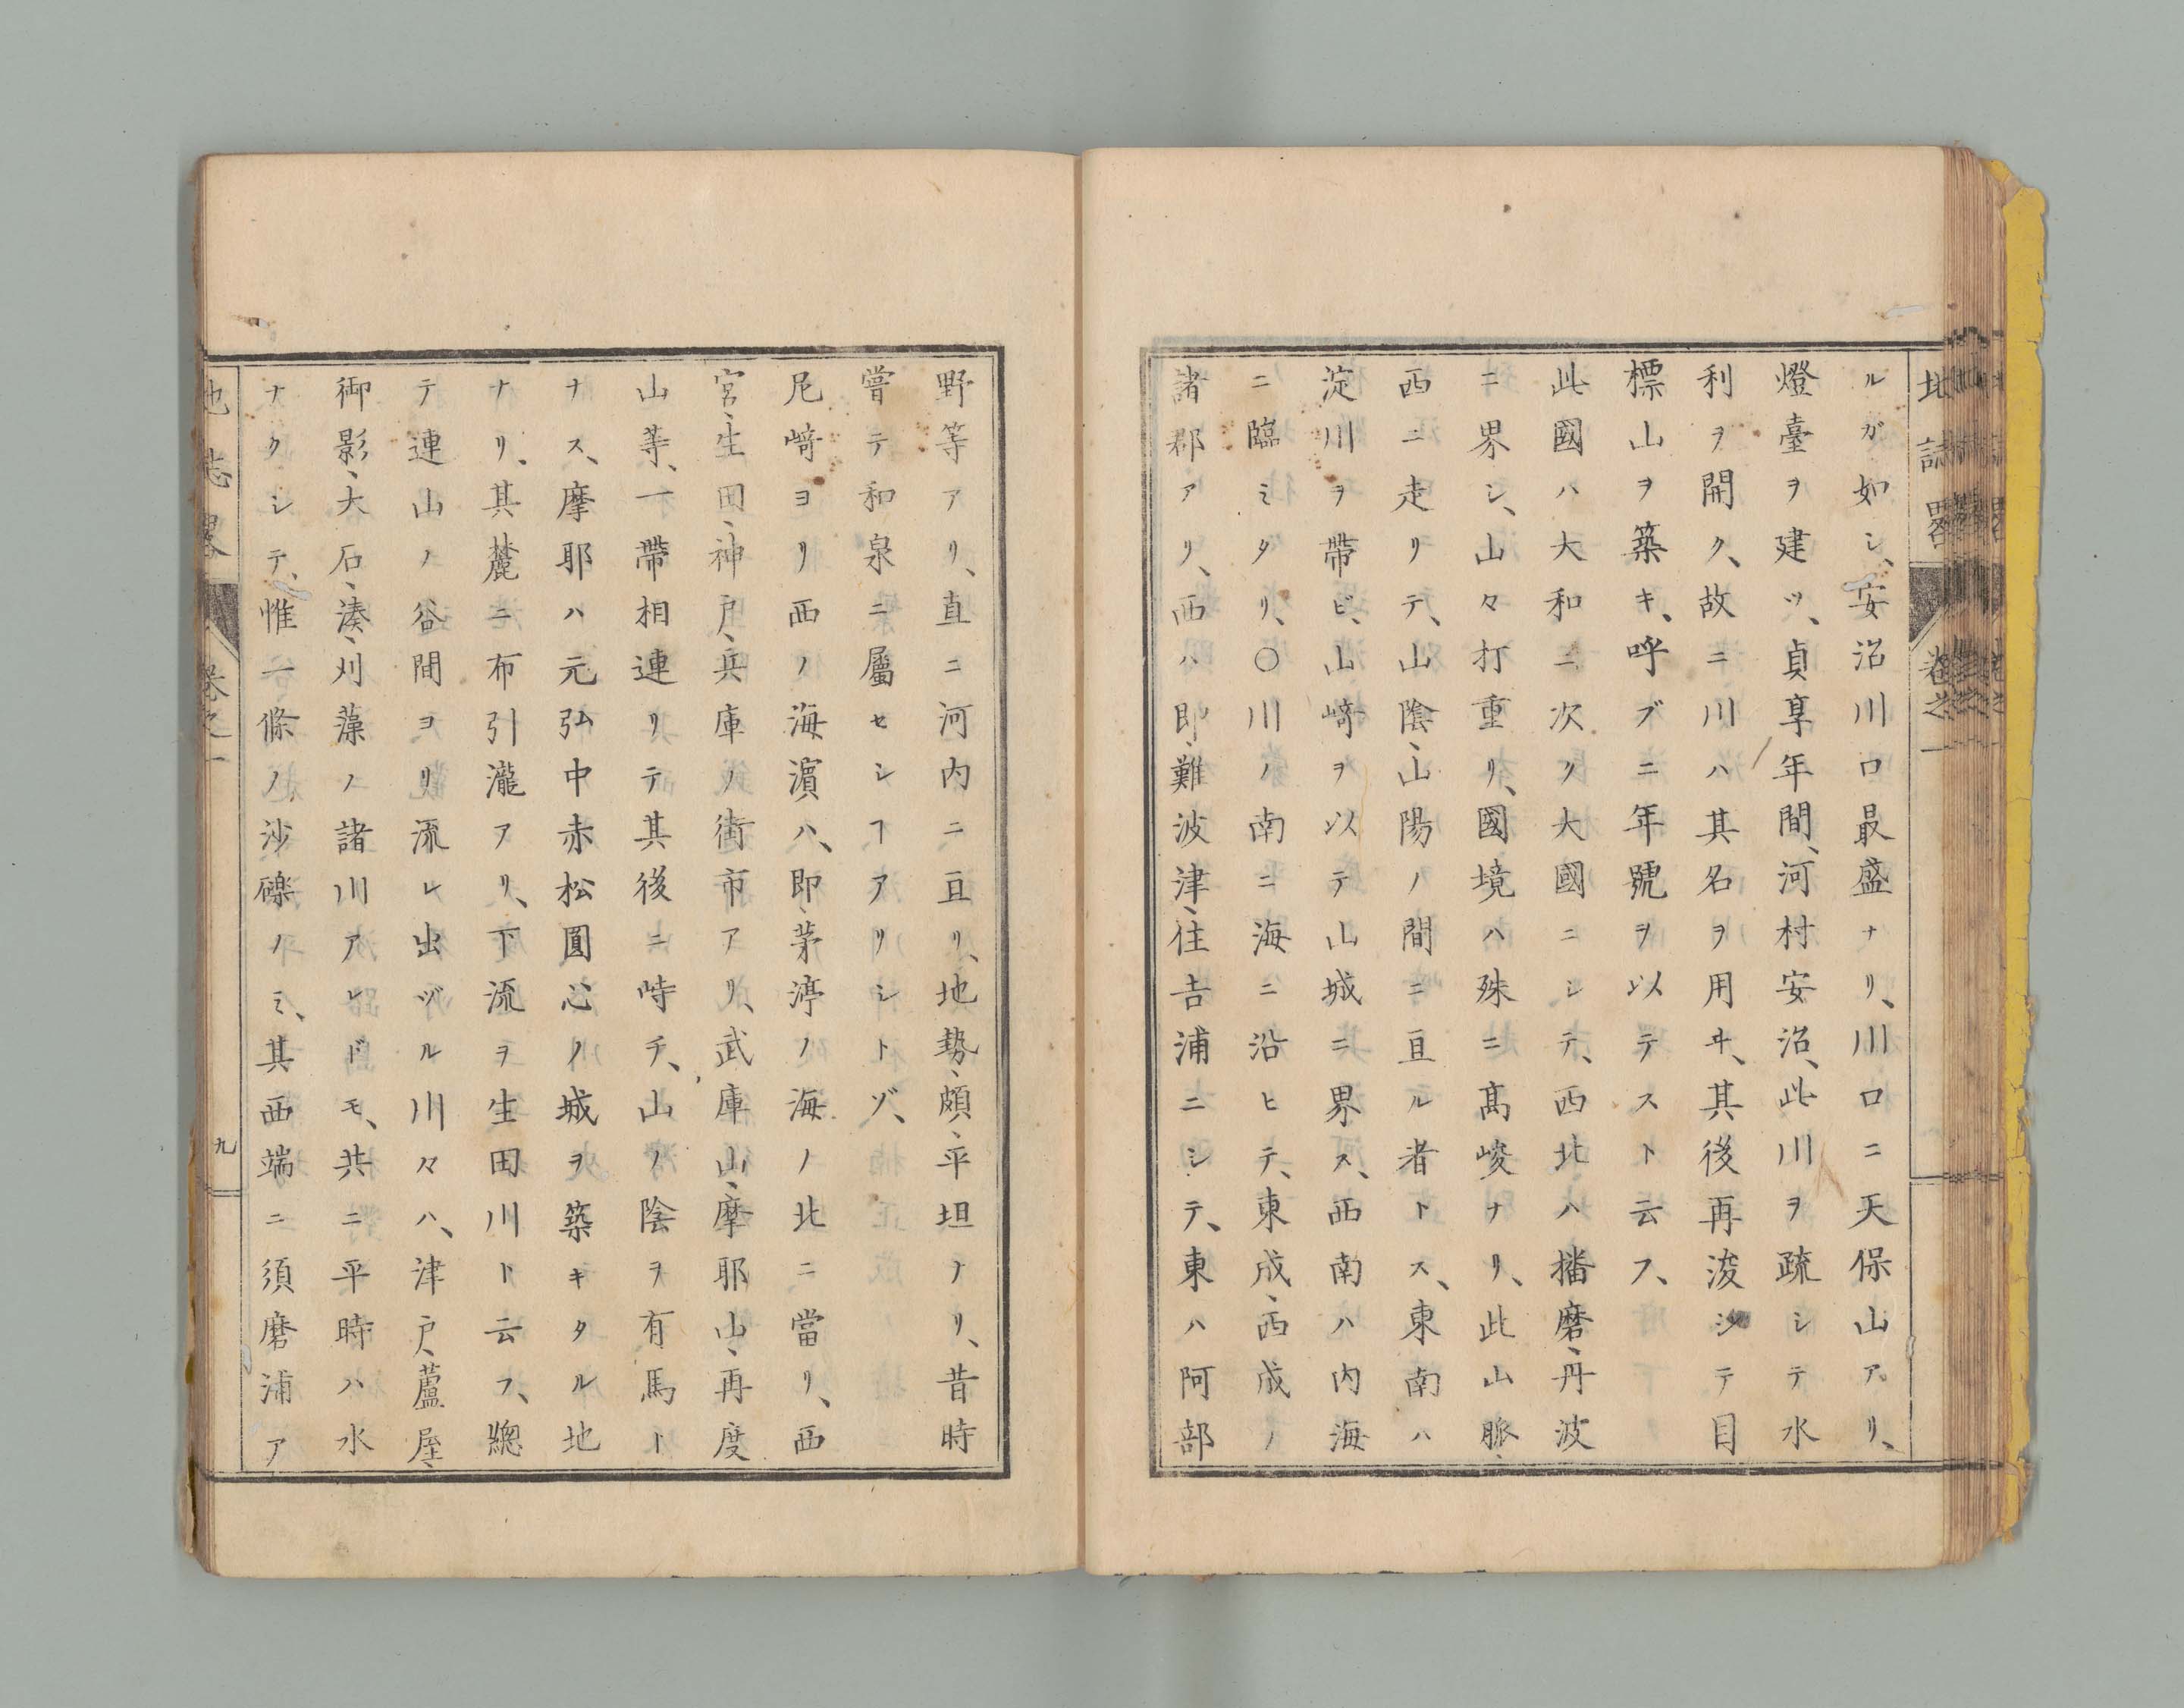 地誌畧 卷之一
ルガ如シ、安治川口最盛ナリ、川口ニ天保山アリ、
燈臺ヲ建ツ、貞享年間、河村安治、此川ヲ疏シテ水
利ヲ開ク、故ニ川ハ其名ヲ用ヰ、其後再浚シテ目
標山ヲ築キ、呼ブニ年號ヲ以テスト云フ、
此國ハ大和ニ次ク大國ニシテ、西北ハ播磨、丹波
ニ界シ、山々打重リ、國境ハ殊ニ髙峻ナリ、此山脈、
西ニ走リテ、山陰、山陽ノ間ニ亘ル者トス、東南ハ
淀川ヲ帶ビ、山﨑ヲ以テ山城ニ界ス、西南ハ内海
ニ臨ミタリ、〇川ノ南ニ海ニ沿ヒテ、東成、西成ノ
諸郡アリ、西ハ即、難波津、住吉浦ニシテ、東ハ阿部
野等アリ、直ニ河内ニ亘リ、地勢、頗、平坦ナリ、昔時
嘗テ和泉ニ屬セシヿアリシトゾ、
尼﨑ヨリ西ノ海濵ハ、即、茅渟ノ海ノ北ニ當リ、西
宮、生田、神戸、兵庫ノ街市アリ、武庫山、摩耶山、再度
山等、一帶相連リテ其後ニ峙チ、山ノ陰ヲ有馬ト
ナス、摩耶ハ元弘中赤松圓心ノ城ヲ築キタル地
ナリ、其麓ニ布引瀧アリ、下流ヲ生田川ト云フ、總
テ連山ノ谷間ヨリ流レ出ヅル川々ハ、津戸、蘆屋、
御影、大石、湊、刈藻ノ諸川アレドモ、共ニ平時ハ水
ナクシテ、惟一條ノ沙礫ノミ、其西端ニ須磨浦ア
地誌畧 卷之一 九